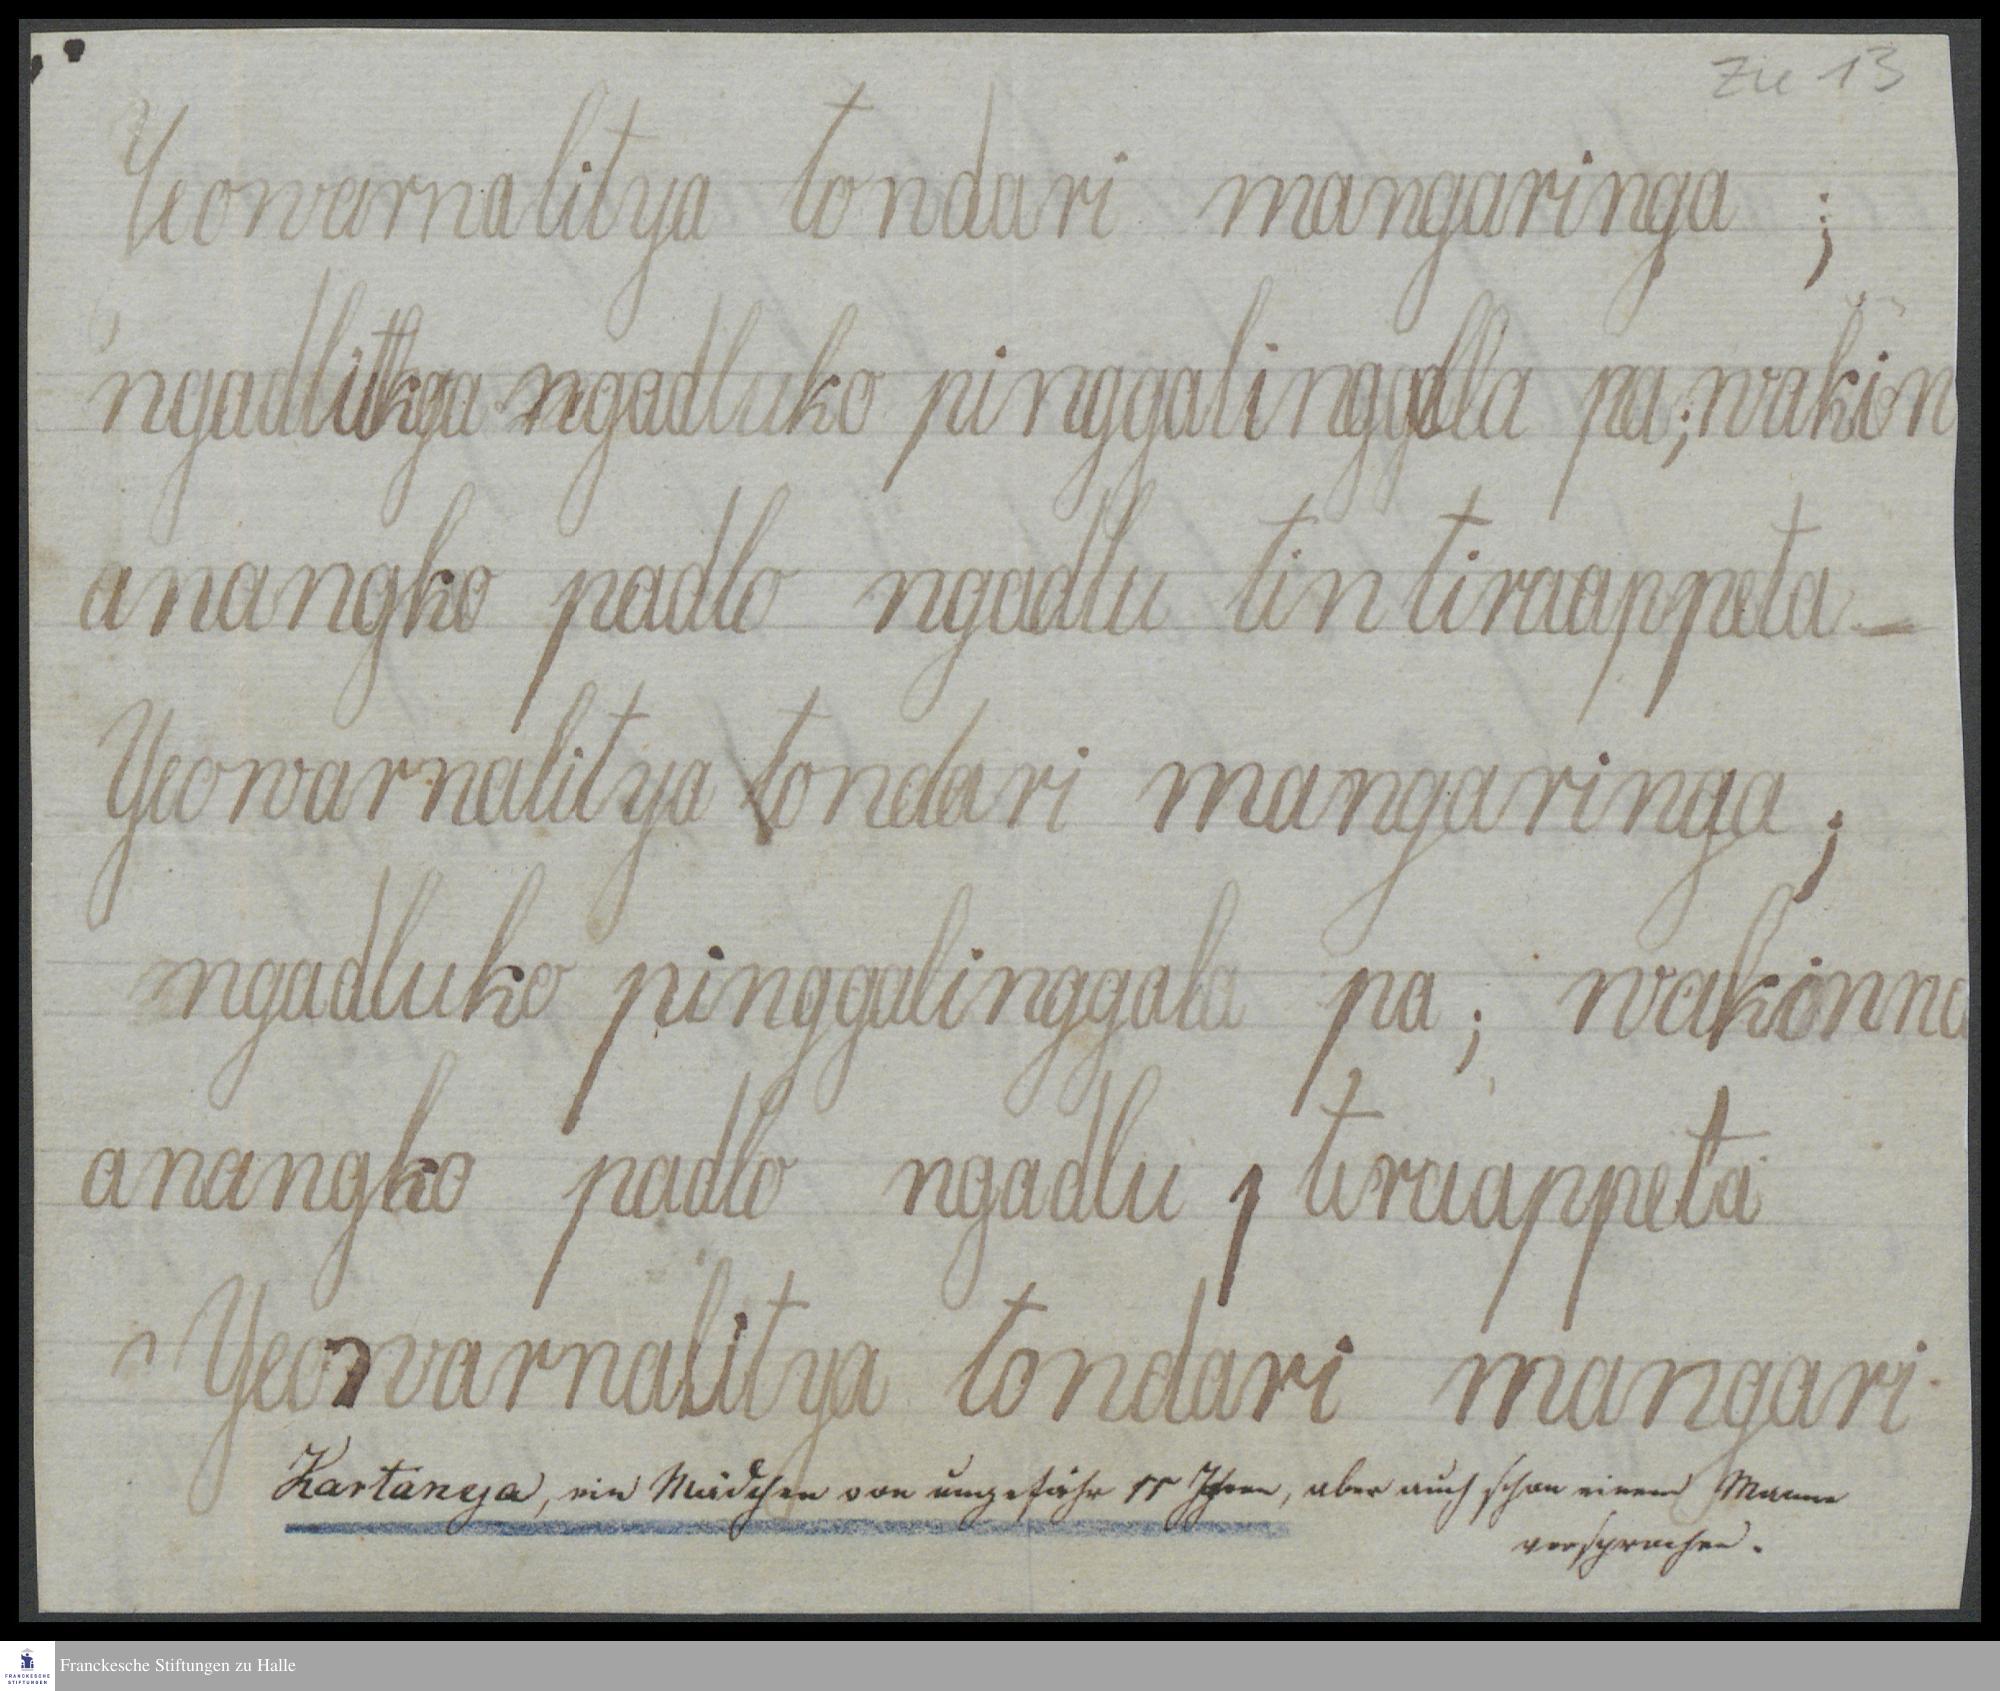 Zu 13
Yeowarnalitya tondari mangaringa ;
ngadluko pinggalinggalla pa; wakin
anangko padlo ngadlu tintiraappeta –
Yeowarnalitya tondari mangaringa ;
ngadluko pinggalinggala pa ; wakinna
anangko padlo ngadlu tiraappeta
Yeowarnalitya tondari mangari
Kartanya, ein Mädchen von ungefähr 11 Jahren, aber auch schon einem Manne
versprochen.
Franckesche Stiftungen zu Halle
FRANCKESCHE
STIFTUNGEN